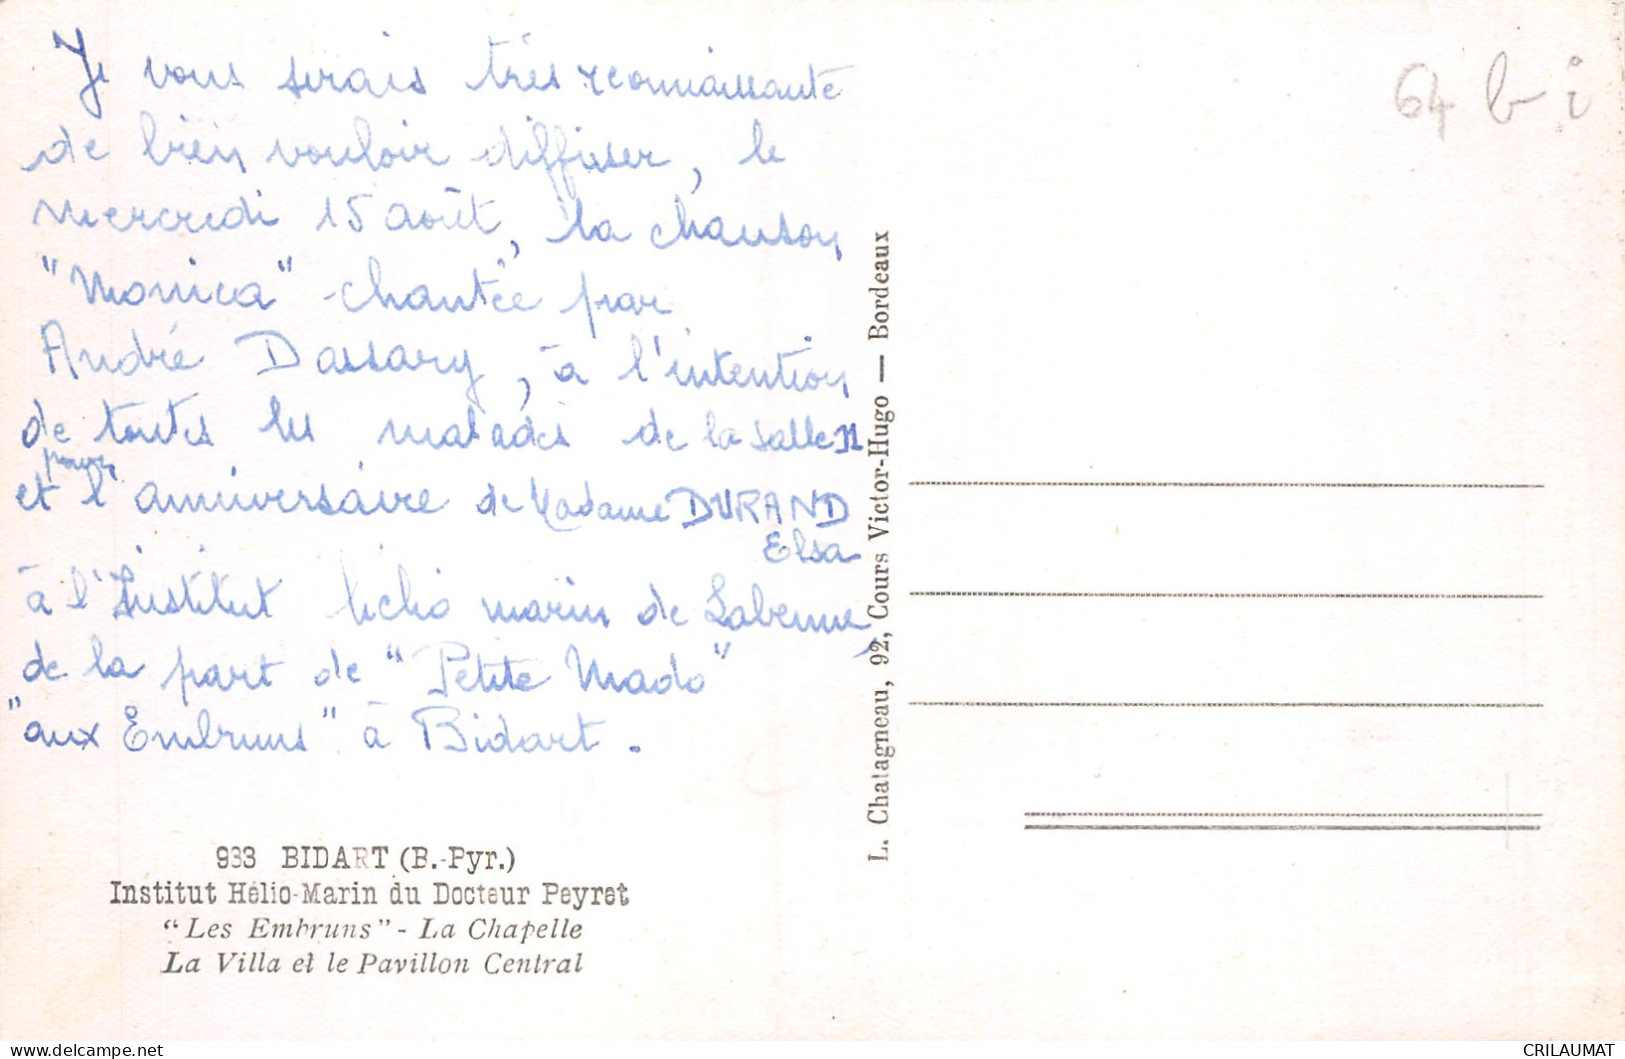 Je vous serais très reconnaissante
de bien vouloir diffuser, le
mercredi 15 août, la chanson
"Monica" chantée par
André Dassary, à l'intention
de toutes les malades de la salle
pour
et l'anniversaire de Madame DURAND
Elsa
à l'Institut hélio marin de Labenne,
de la part de "Petite Mado"
"aux Embruns" à Bidart.
933 BIDART (B.-Pyr.)
Institut Hélio-Marin du Docteur Peyret
"Les Embruns" - La Chapelle
La Villa et le Pavillon Central
L. Chatagneau, 92, Cours Victor-Hugo — Bordeaux
64 bi
delcampe.net
CRILAUMAT